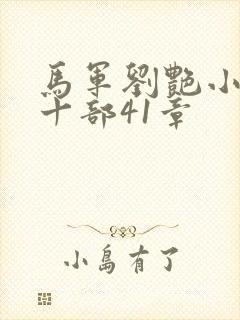 馬軍劉艷小
十部41章
小島有了